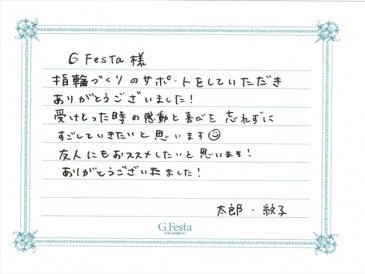 G Festa 様
指輪づくりのサポートをしていただき
ありがとうございました!
受けとった時の感動と喜びを忘れずに
すごしていきたいと思います☺
友人にもおススメしたいと思います!
ありがとうございました!
太郎・紋子
G.Festa